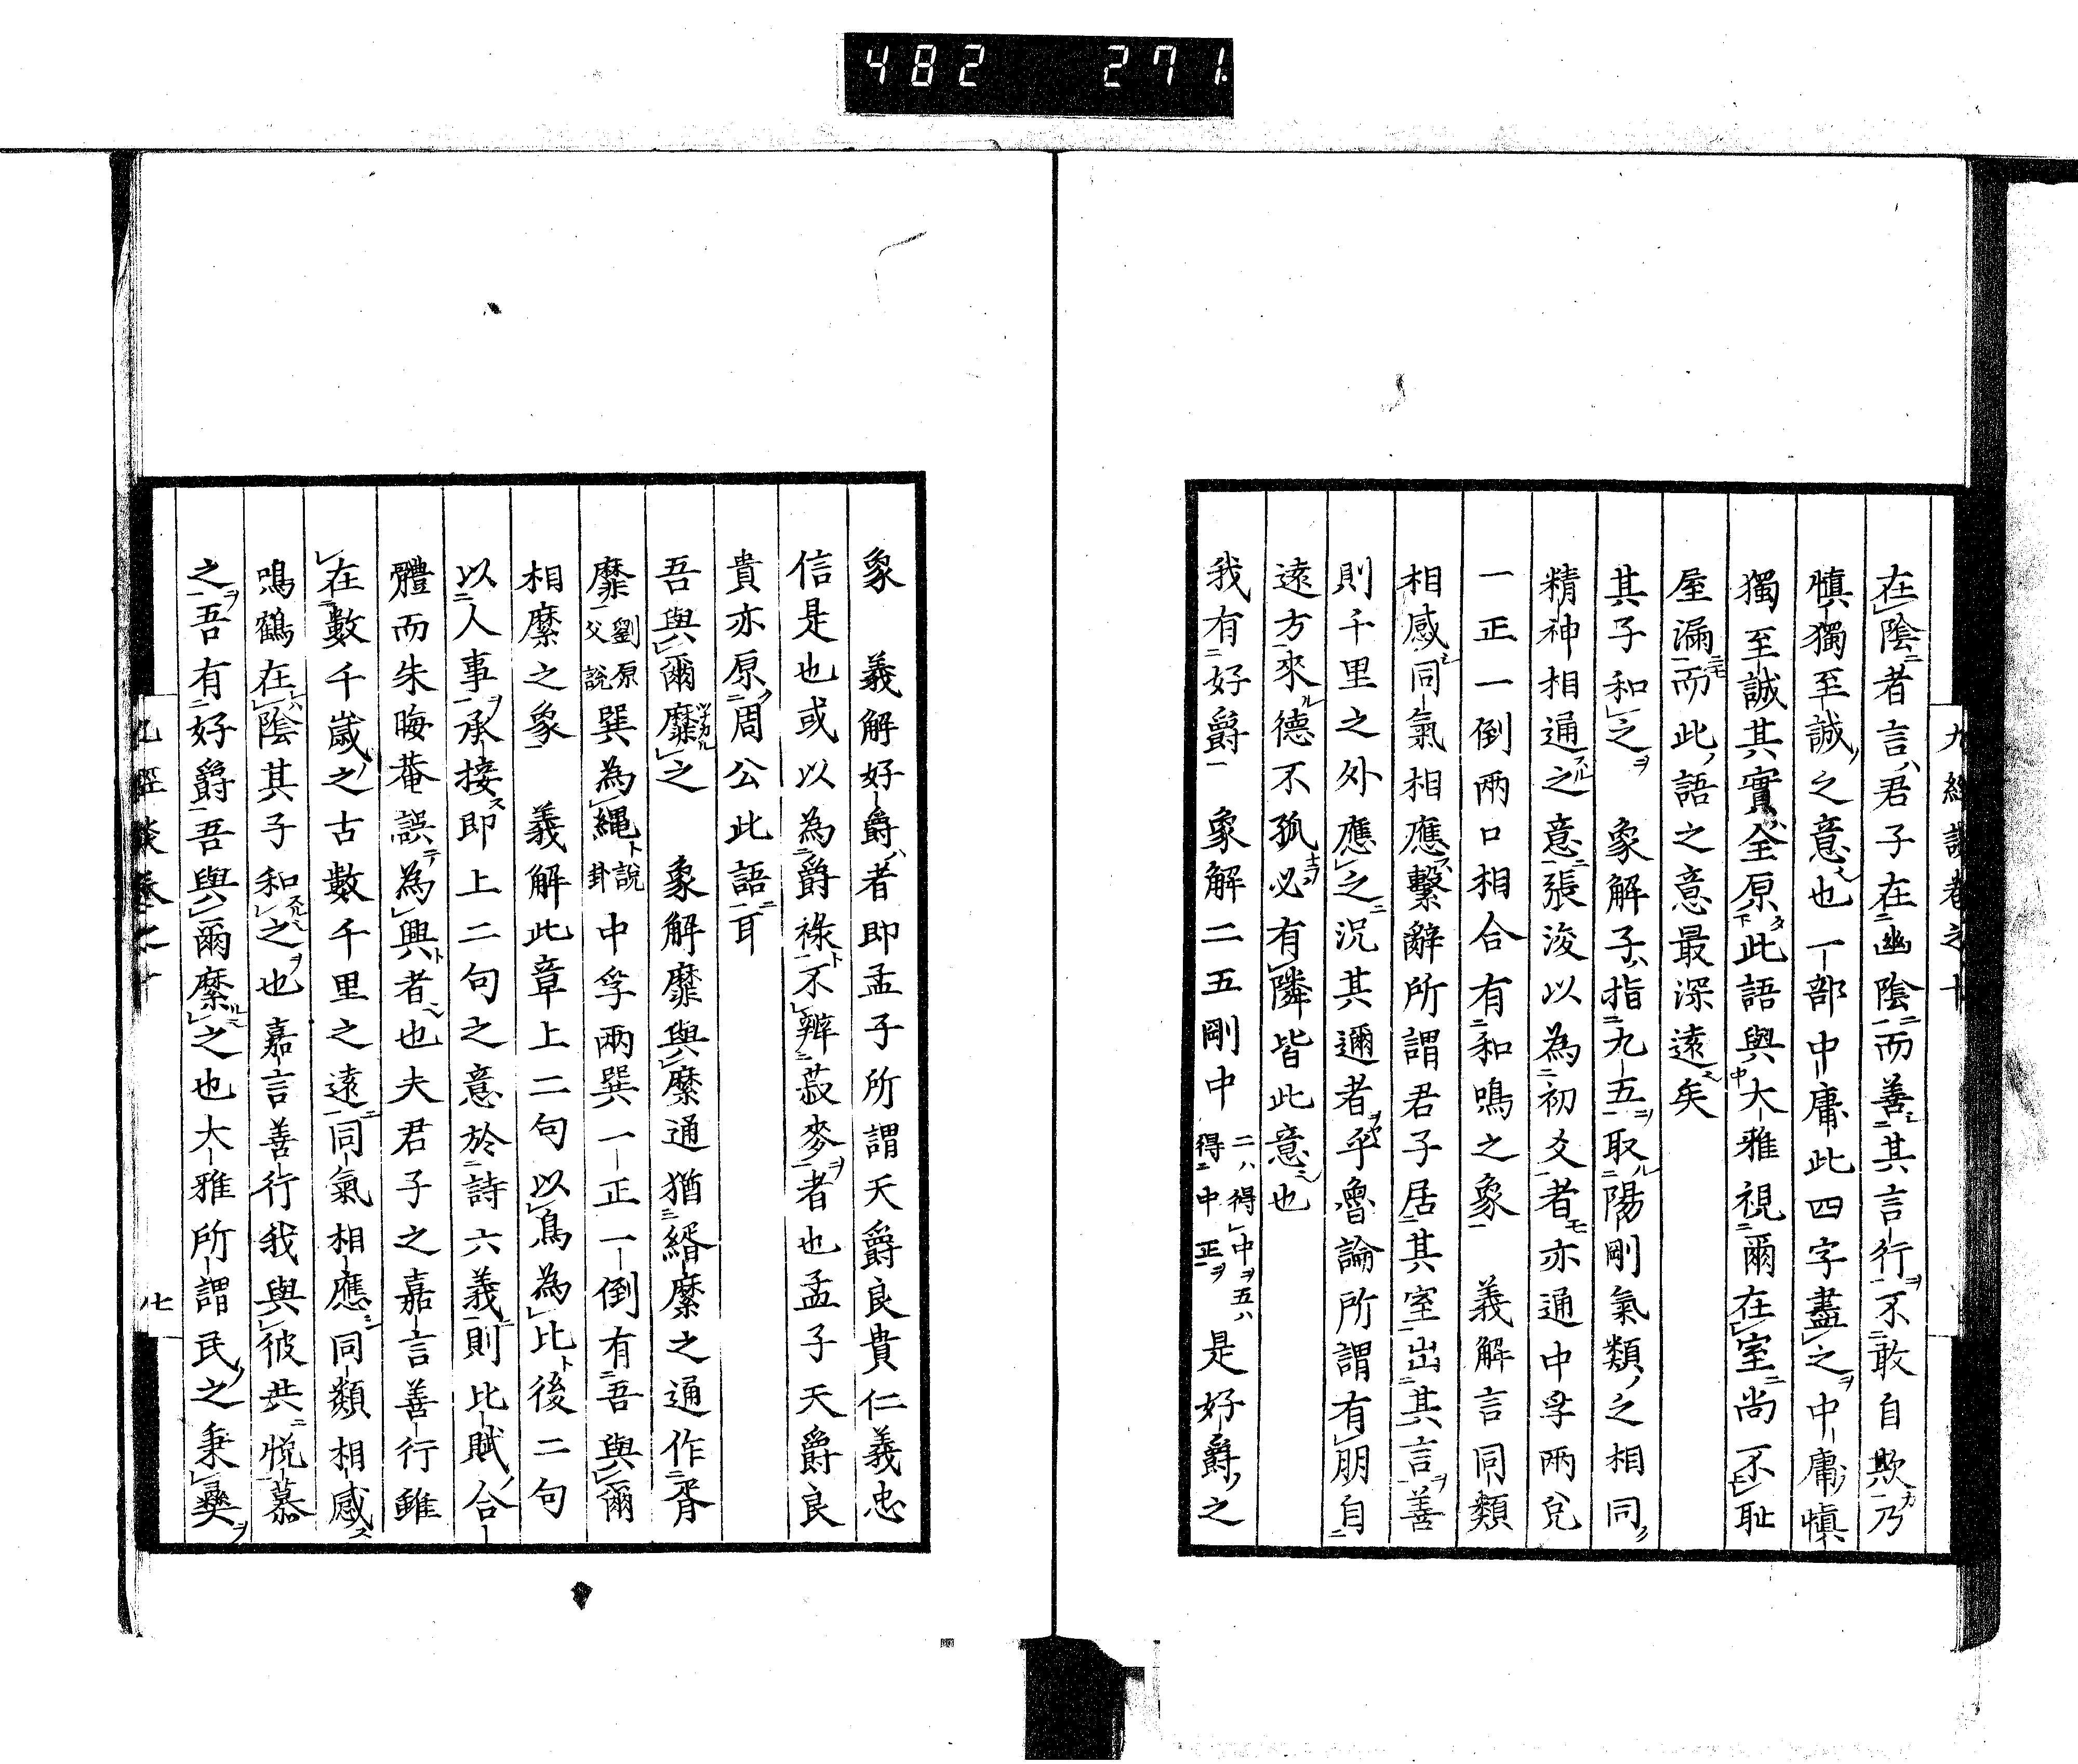 482 271
九經談卷之十
在陰者言君子在幽陰而善其言行不敢自欺乃
愼獨至誠之意也一部中庸此四字盡之中庸愼
獨至誠其實全原此語與大雅視爾在室尚不恥
屋漏而此語之意最深遠矣
其子和之　象解子指九五取陽剛氣類之相同
精神相通之意張浚以為初爻者亦通中孚兩兌
一正一倒兩口相合有和鳴之象　義解言同類
相感同氣相應繫辭所謂君子居其室出其言善
則千里之外應之況其邇者乎魯論所謂有朋自
遠方來德不孤必有隣皆此意也
我有好爵　象解二五剛中二得中五得中正是好爵之
象　義解好爵者即孟子所謂天爵良貴仁義忠
信是也或以為爵祿不辨菽麥者也孟子天爵良
貴亦原周公此語耳
吾與爾靡之　象解靡與縻通猶緡縻之通作胥
靡劉原父說巽為繩說卦中孚兩巽一正一倒有吾與爾
相縻之象　義解此章上二句以鳥為比後二句
以人事承接即上二句之意於詩六義則比賦合
體而朱晦菴誤為興者也夫君子之嘉言善行雖
在數千歲之古數千里之遠同氣相應同類相感
鳴鶴在陰其子和之也嘉言善行我與彼共悅慕
之吾有好爵吾與爾縻之也大雅所謂民之秉彝
九經談卷之十
七